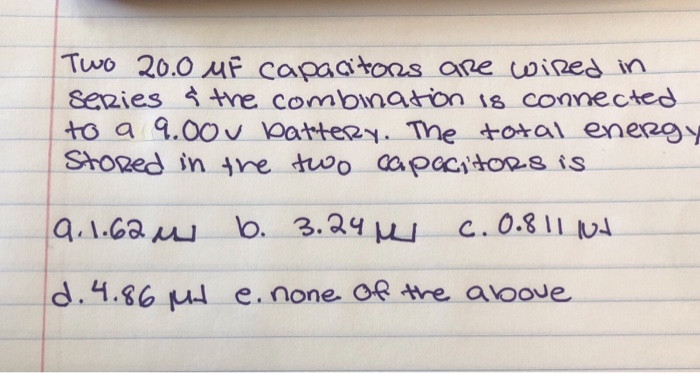 Two 20.0 μF capacitors are wired in
series & the combination is connected
to a 9.00v battery. The total energy
stored in the two capacitors is
a. 1.62 μJ b. 3.24 μJ c. 0.811 μJ
d. 4.86 μJ e. none of the above